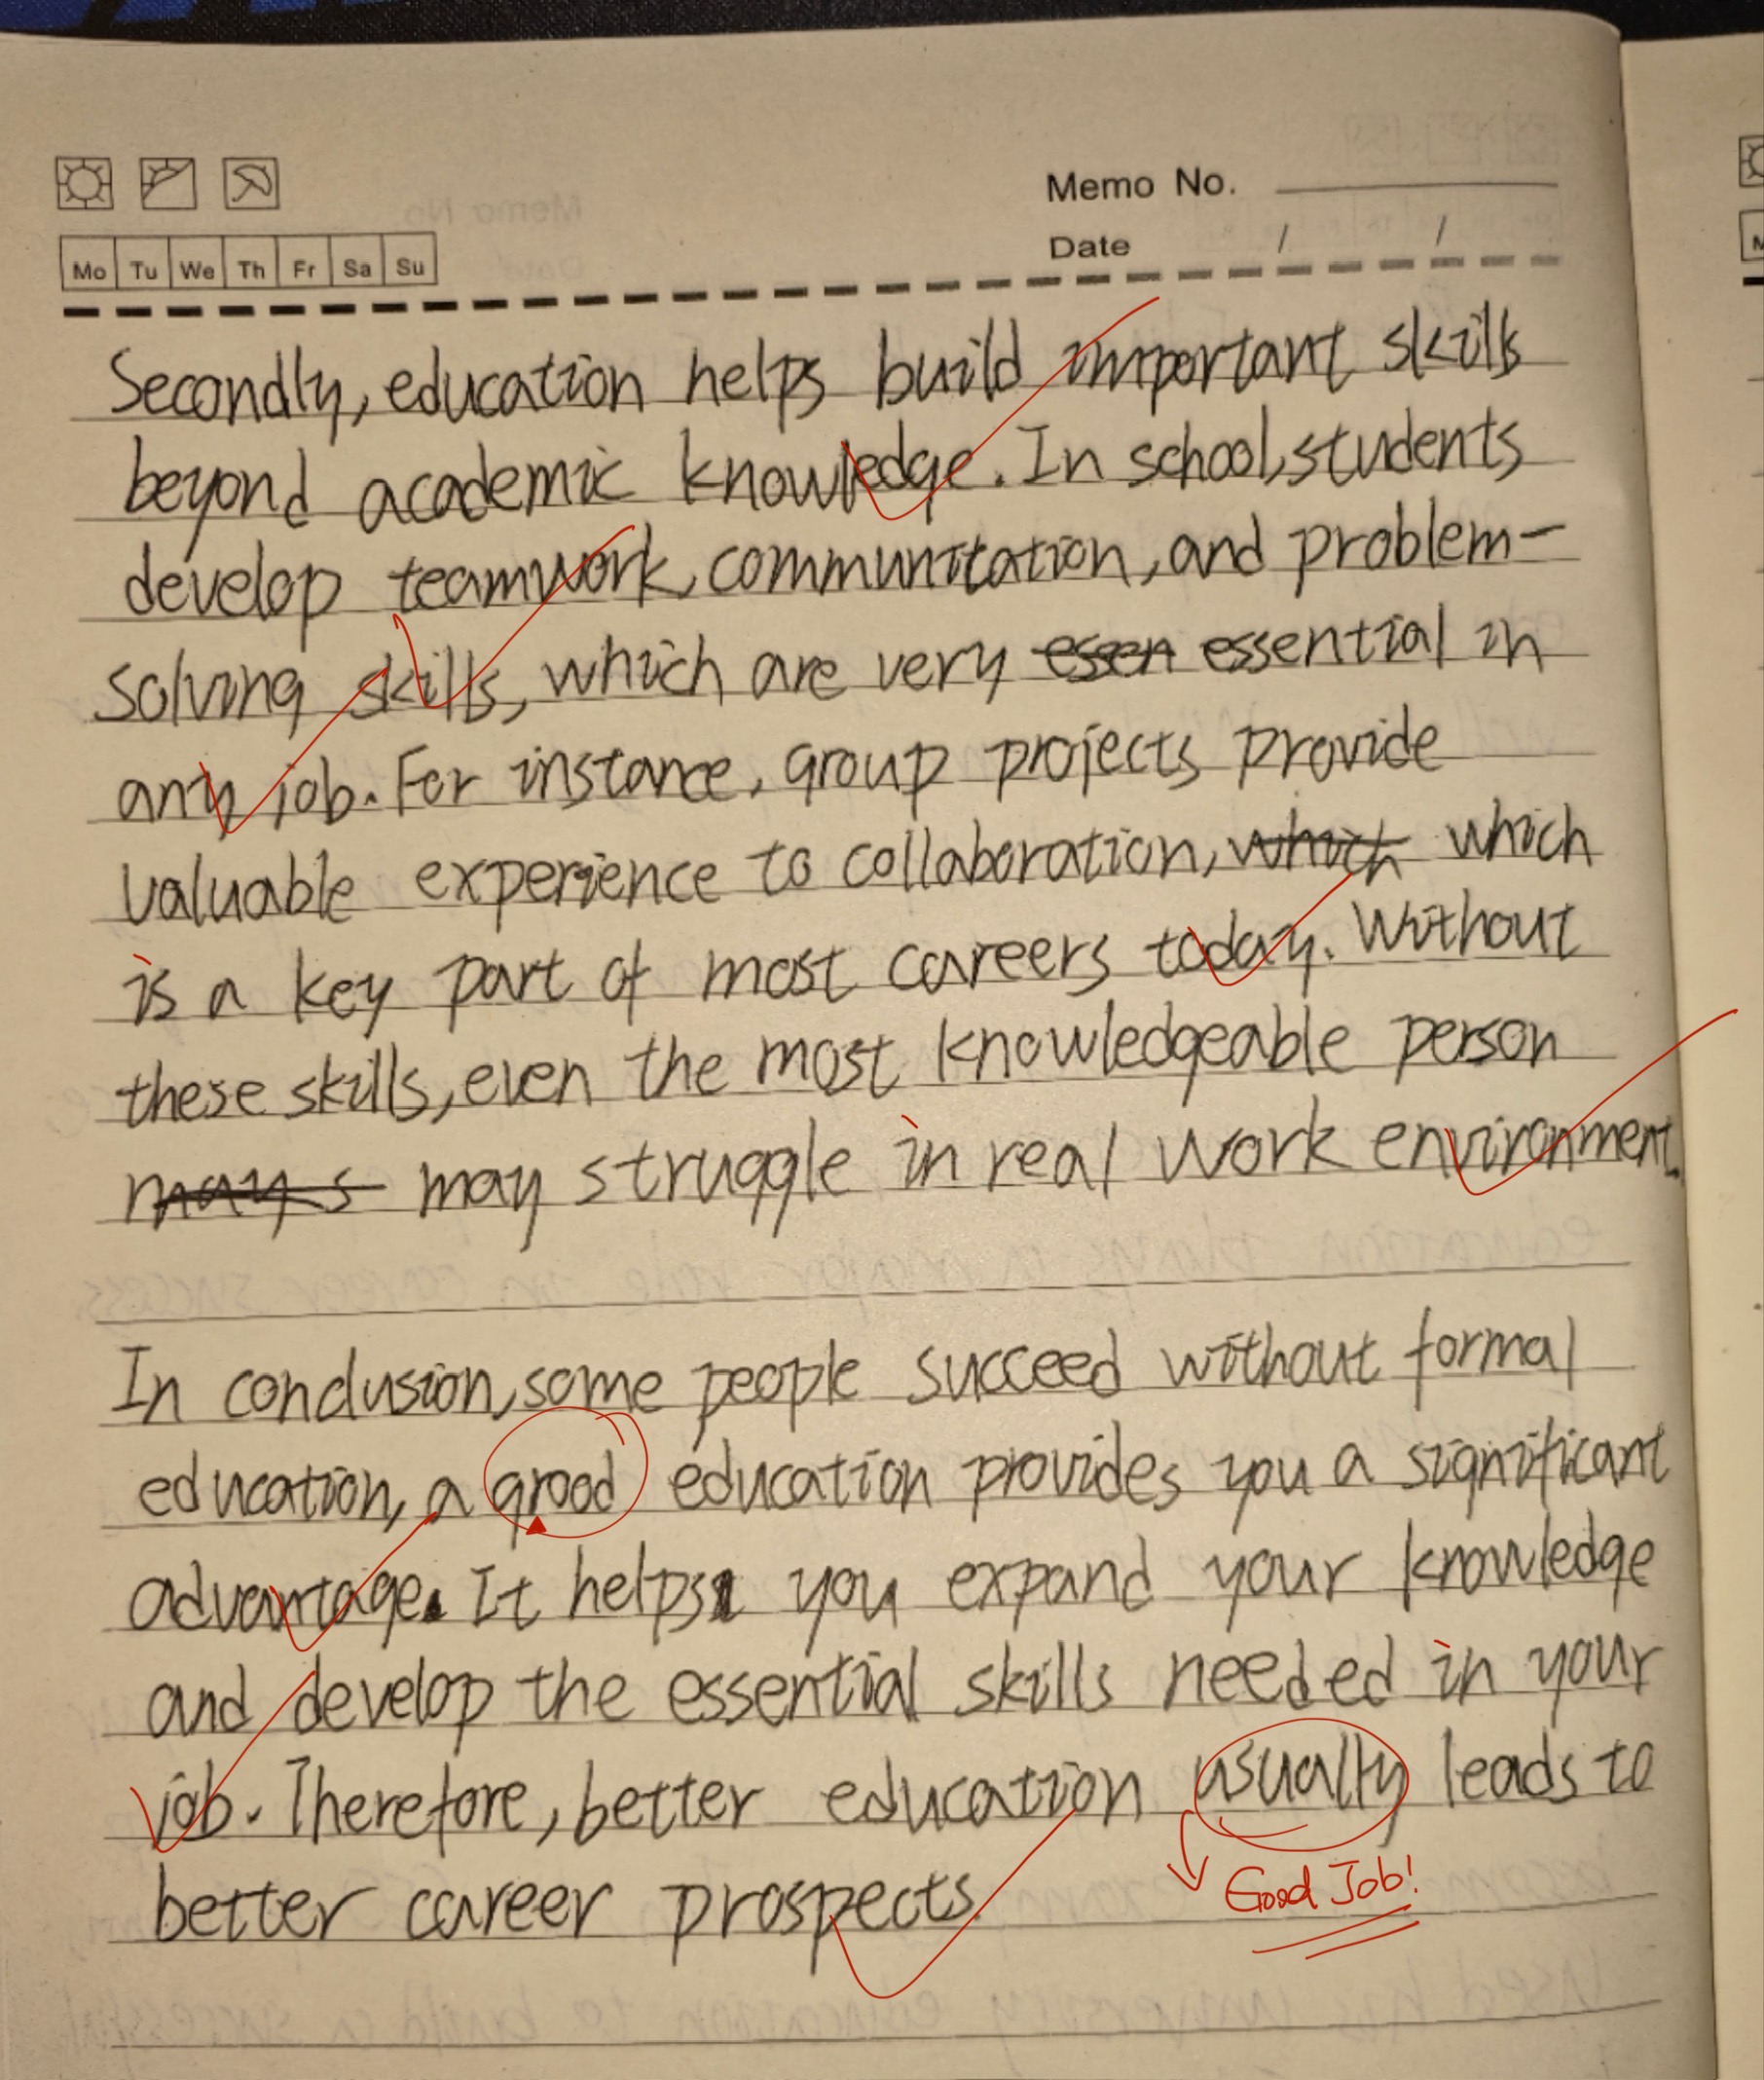 Memo No.
Date / /
Mo Tu We Th Fr Sa Su
Secondly, education helps build important skills
beyond academic knowledge. In school, students
develop teamwork, communitation, and problem-
solving skills, which are very essen essential in
any job. For instance, group projects provide
valuable experience to collaboration, which which
is a key part of most careers today. Without
these skills, even the most knowledgeable person
may s may struggle in real work environment.
In conclusion, some people succeed without formal
education, a grood education provides you a significant
advantage. It helps you expand your knowledge
and develop the essential skills needed in your
job. Therefore, better education usually leads to
Good Job!
better career prospects.